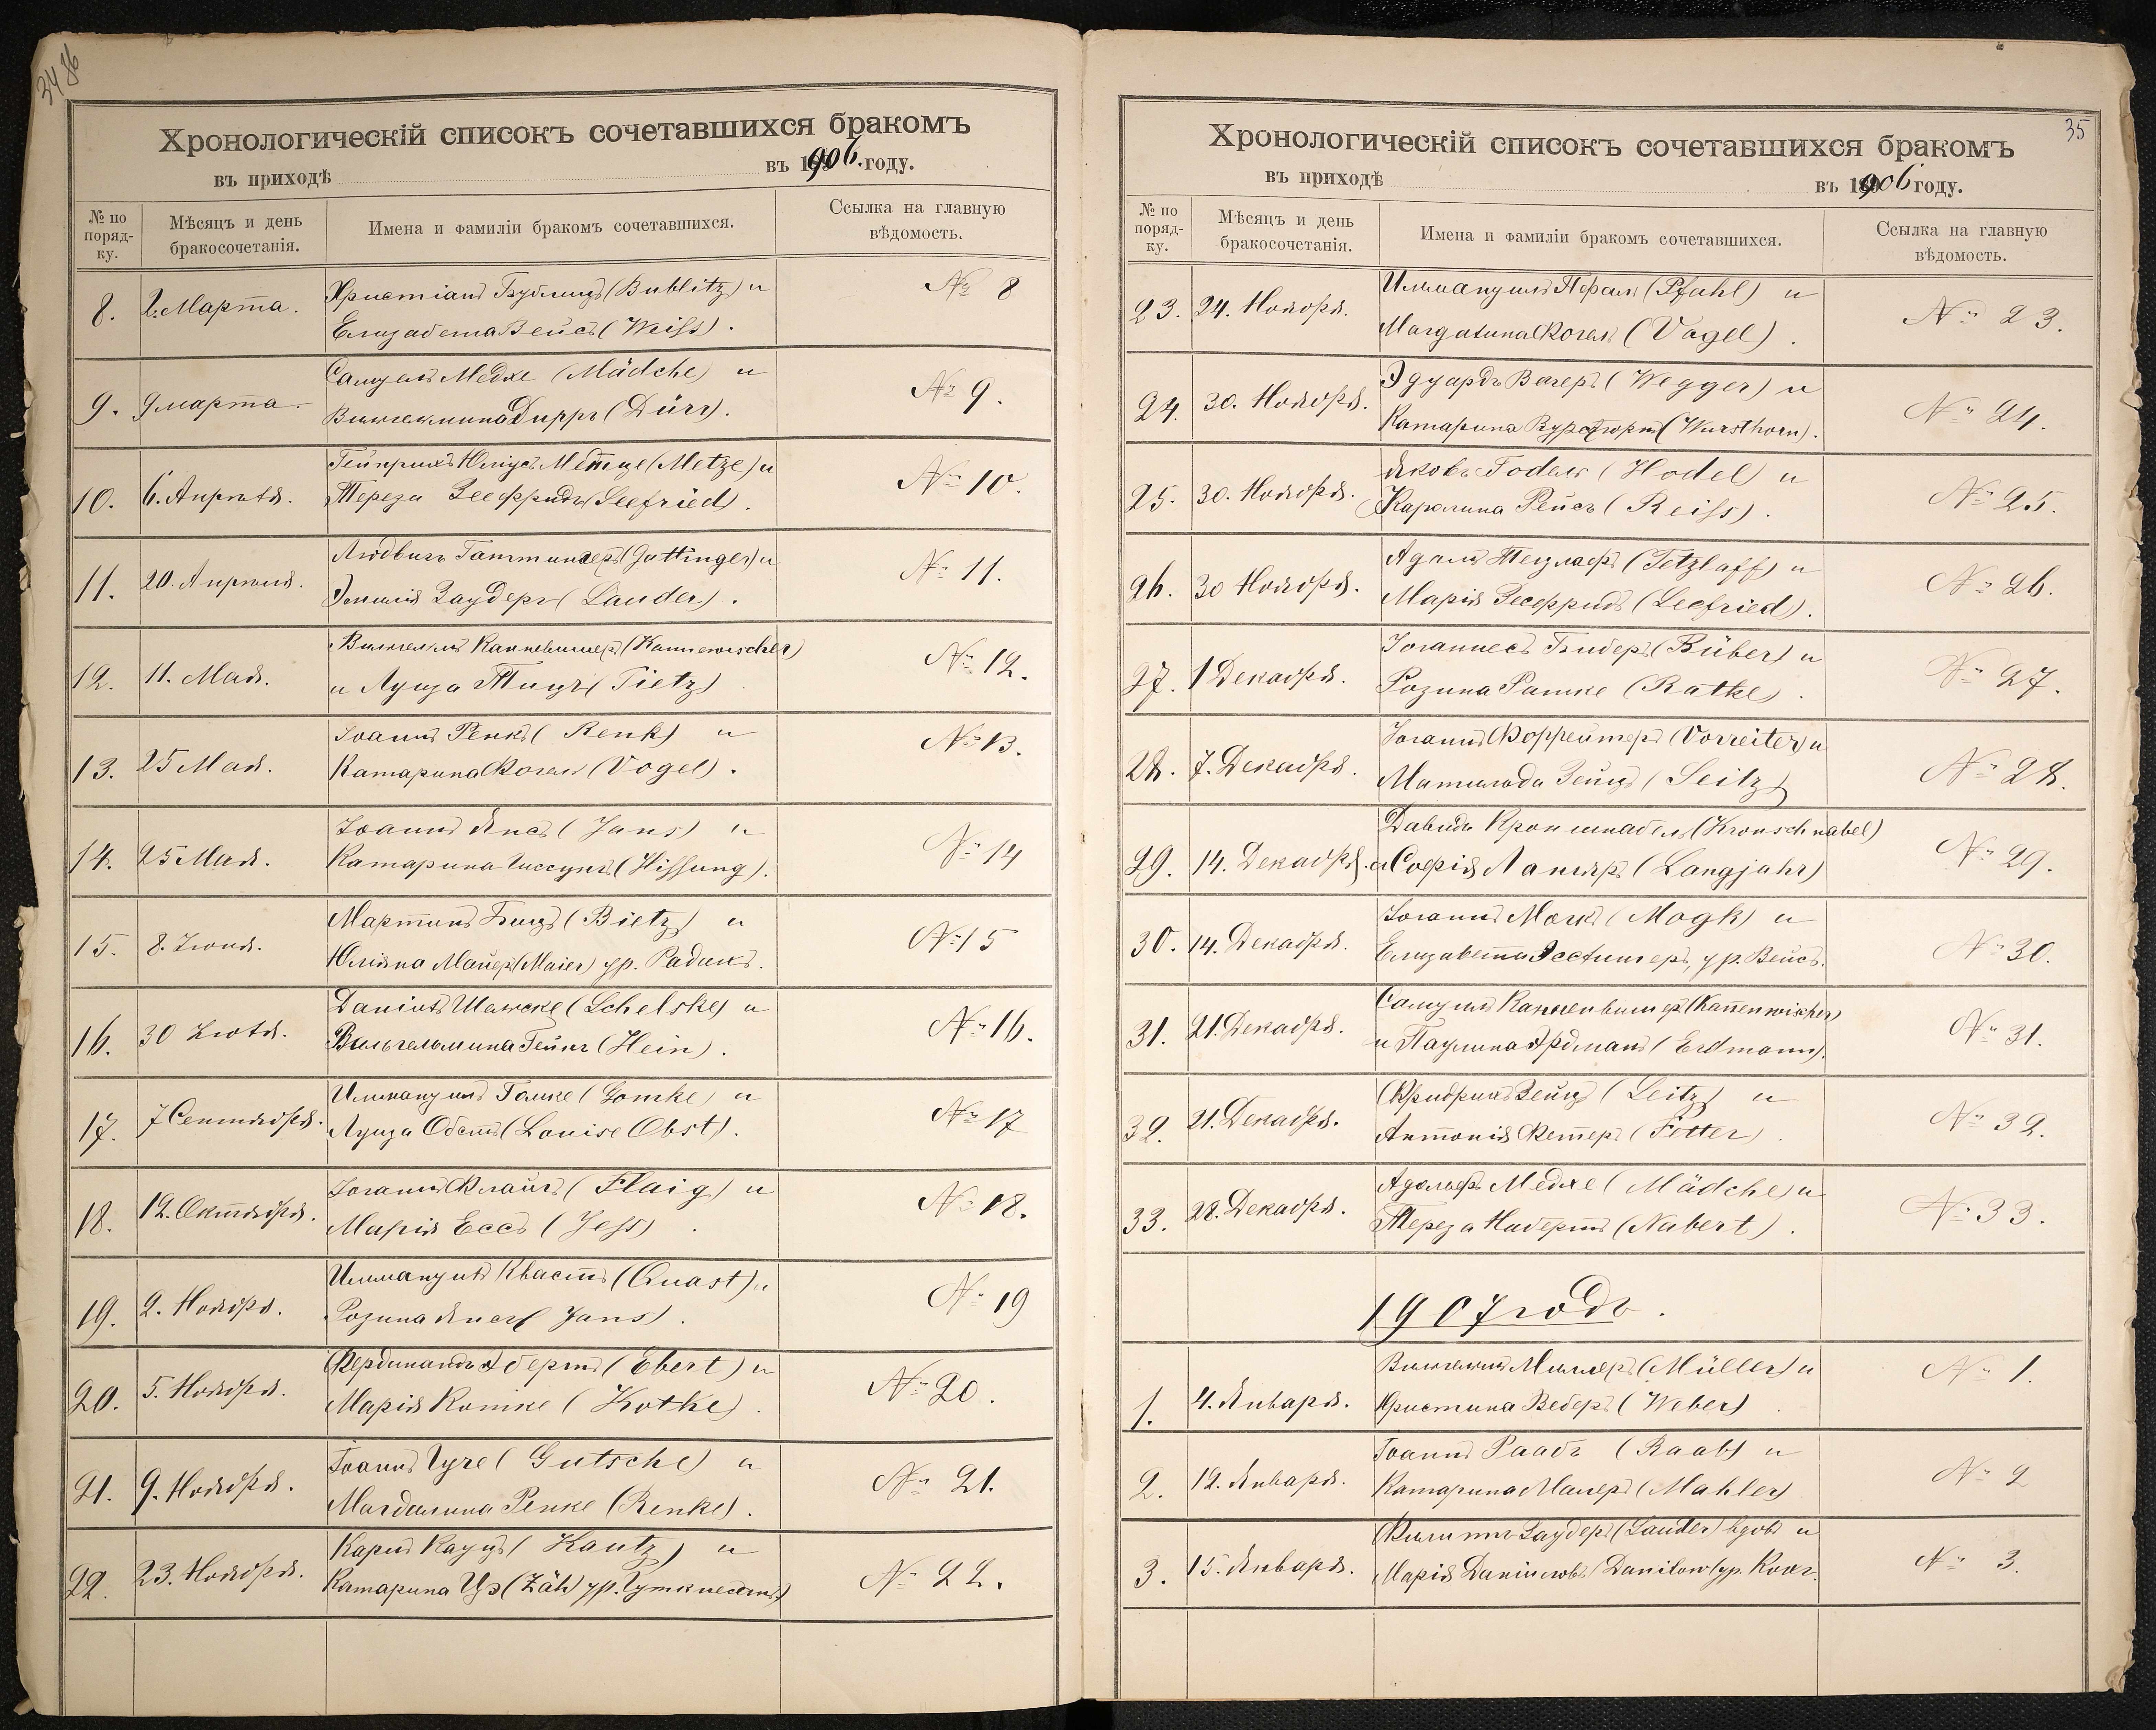 34 36
Хронологическій списокъ сочетавшихся бракомъ
въ приходѣ въ 1906. году.
№ по порядку.
Мѣсяцъ и день бракосочетанія.
Имена и фамиліи бракомъ сочетавшихся.
Ссылка на главную вѣдомость.
8. 2. Марта. Христіанъ Бублицъ (Bublitz) и № 8
Елизабета Вейсъ (Weiss).
9. 9 марта. Самуелъ Медхе (Mädche) и № 9.
Вильгелмина Дирръ (Dürr).
10. 6. Апрѣля. Гейнрихъ Юліусъ Метце (Metze) и № 10.
Тереза Зеефридъ (Seefried).
11. 20. Апрѣля. Людвигъ Гаттингеръ (Gattinger) и № 11.
Эмилія Заудеръ (Sauder).
12. 11. Мая. Вильгелмъ Канневишеръ (Kannewischer) № 12.
и Луиза Тицъ (Tietz)
13. 25 Мая. Іоаннъ Ренкъ (Renk) и № 13.
Катарина Фогелъ (Vogel).
14. 25 Мая. Іоаннъ Янсъ (Jans) и № 14
Катарина Гиссунгъ (Hissung).
15. 8. Іюня. Мартинъ Бицъ (Bietz) и № 15
Юліяна Майеръ (Maier) ур. Радикъ.
16. 30 Іюля. Даніилъ Шельске (Schelske) и № 16.
Вильгельмина Гейнъ (Hein).
17. 7 Сентября. Иммануилъ Гомке (Gomke) и № 17
Луиза Обстъ (Louise Obst).
18. 12. Октября. Іоганнъ Флайгъ (Flaig) и № 18.
Марія Ессъ (Jess)
19. 2. Ноября. Иммануилъ Квастъ (Quast) и № 19
Розина Янсъ (Jans).
20. 5. Ноября. Фердинандъ Эбертъ (Ebert) и № 20.
Марія Котке (Kotke).
21. 9. Ноября. Іоаннъ Гуче (Gutsche) и № 21.
Магдалина Ренке (Renke).
22. 23. Ноября. Карлъ Кауцъ (Kautz) и № 22.
Катарина Цэ (Zäh) ур.
35
Хронологическій списокъ сочетавшихся бракомъ
въ приходѣ въ 1906 году.
№ по порядку.
Мѣсяцъ и день бракосочетанія.
Имена и фамиліи бракомъ сочетавшихся.
Ссылка на главную вѣдомость.
23. 24. Ноября. Иммануилъ Пфалъ (Pfahl) и № 23.
Маргатина Фогелъ (Vogel).
24. 30. Ноября. Эдуардъ Вегеръ (Wegger) и № 24.
Катарина Вурстгорнъ (Wursthorn).
25. 30. Ноября. Яковъ Годелъ (Hodel) и № 25.
Каролина Рейсъ (Reiss).
26. 30 Ноября. Адамъ Тецлафъ (Tetzlaff) и № 26.
Марія Зеефридъ (Seefried).
27. 1 Декабря. Іоганнесъ Биберъ (Büber) и № 27.
Розина Ратке (Ratke).
28. 7. Декабря. Іоганнъ Форрейтеръ (Vorreiter) и № 28.
Матильда Зейцъ (Seitz)
29. 14. Декабря. Давидъ Кроншнабелъ (Kronschnabel) № 29.
и Софія Лангяръ (Langjahr)
30. 14. Декабря. Іоганнъ Могкъ (Mogk) и № 30.
Елизавета ур. Вейсъ.
31. 21. Декабря. Самуилъ Канненвишеръ (Kannenwischer) № 31.
и Паулина Эрдманъ (Erdmann).
32. 21. Декабря. Фридрихъ Зейцъ (Seitz) и № 32.
Антонія Фетеръ (Fetter)
33. 28. Декабря. Адольфъ Медхе (Mädche) и № 33.
Тереза Набертъ (Nabert).
1907 годъ.
1. 4. Января. Вильгелмъ Миллеръ (Müller) и № 1.
Христина Веберъ (Weber)
2. 12. Января. Іоаннъ Раабъ (Raab) и № 2
Катарина Малеръ (Mahler)
3. 15. Января. Филиппъ Заудеръ (Sauder) вдовъ и № 3.
Марія Даніиловъ (Danilow) ур. Кохъ.